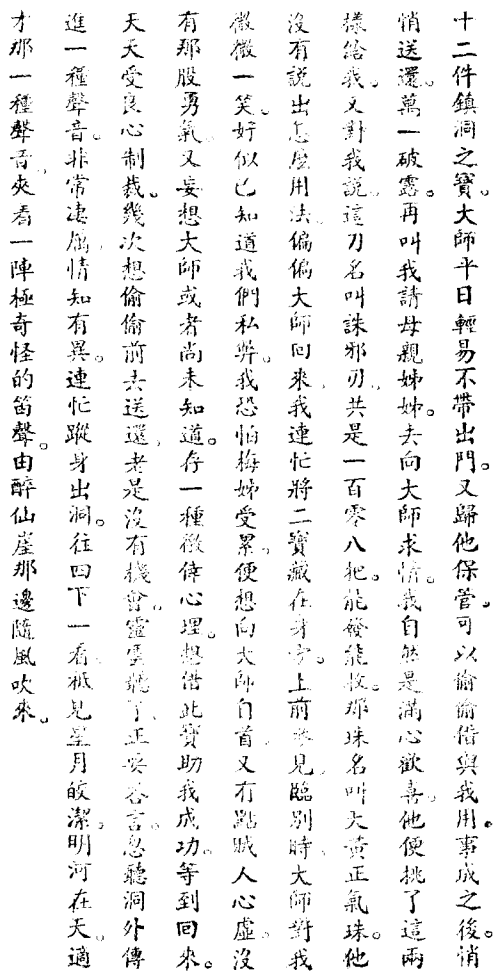 十二件鎮洞之寶。大師平日輕易不帶出門。又歸他保管。可以偷偷借與我用。事成之後。悄
悄送還。萬一破露。再叫我請母親姊姊。去向大師求情。我自然是滿心歡喜。他便挑了這兩
樣給我。又對我說。這刀名叫誅邪刃。共是一百零八把。能發能收。那珠名叫大黃正氣珠。他
沒有說出怎麼用法。偏偏大師回來。我連忙將二寶藏在身旁。上前參見。臨別時。大師對我
微微一笑。好似已知道我們私弊。我恐怕梅姊受累。便想向大師自首。又有點賊人心虛。沒
有那股勇氣。又妄想大師或者尚未知道。存一種徼倖心理。想借此寶助我成功。等到回來。
天天受良心制裁。幾次想偷偷前去送還。老是沒有機會。靈雲聽了。正要答言。忽聽洞外傳
進一種聲音。非常淒厲。情知有異。連忙蹤身出洞。往四下一看。祇見星月皎潔。明河在天。適
才那一種聲音。夾着一陣極奇怪的笛聲。由醉仙崖那邊隨風吹來。